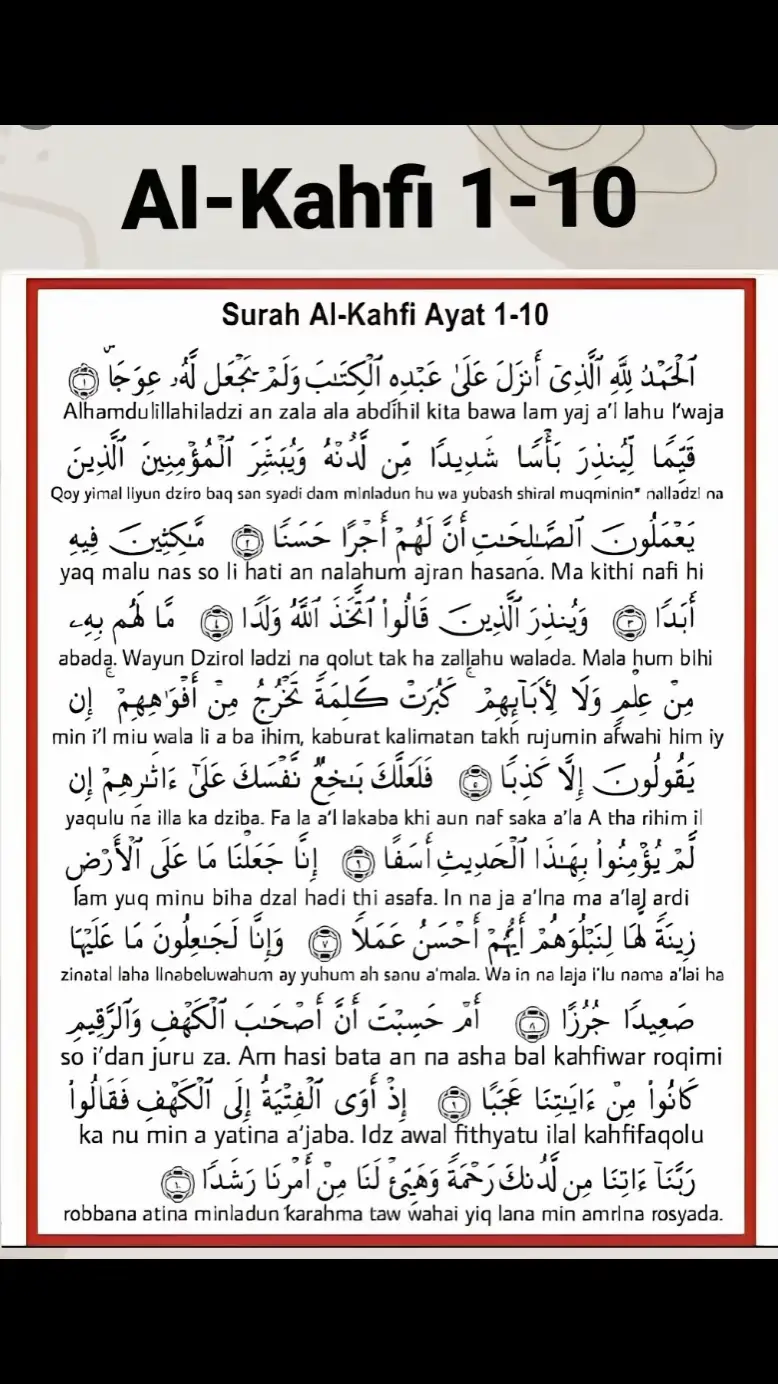 Al-Kahfi 1-10
Surah Al-Kahfi Ayat 1-10
ٱلْحَمْدُ لِلَّهِ ٱلَّذِىٓ أَنزَلَ عَلَىٰ عَبْدِهِ ٱلْكِتَٰبَ وَلَمْ يَجْعَل لَّهُۥ عِوَجَاۜ ١
Alhamdulillahiladzi an zala ala abdihil kita bawa lam yaj a'l lahu I'waja
قَيِّمًا لِّيُنذِرَ بَأْسًا شَدِيدًا مِّن لَّدُنْهُ وَيُبَشِّرَ ٱلْمُؤْمِنِينَ ٱلَّذِينَ
Qoy yimal liyun dziro baq san syadi dam minladun hu wa yubash shiral muqminin* nalladzi na
يَعْمَلُونَ ٱلصَّٰلِحَٰتِ أَنَّ لَهُمْ أَجْرًا حَسَنًا ٢ مَّٰكِثِينَ فِيهِ
yaq malu nas so li hati an nalahum ajran hasana. Ma kithi nafi hi
أَبَدًا ٣ وَيُنذِرَ ٱلَّذِينَ قَالُوا۟ ٱتَّخَذَ ٱللَّهُ وَلَدًا ٤ مَّا لَهُم بِهِۦ
abada. Wayun Dzirol ladzi na qolut tak ha zallahu walada. Mala hum bihi
مِنْ عِلْمٍ وَلَا لِءَابَآئِهِمْ ۚ كَبُرَتْ كَلِمَةً تَخْرُجُ مِنْ أَفْوَٰهِهِمْ ۚ إِن
min i'l miu wala li a ba ihim, kaburat kalimatan takh rujumin afwahi him iy
يَقُولُونَ إِلَّا كَذِبًا ٥ فَلَعَلَّكَ بَٰخِعٌ نَّفْسَكَ عَلَىٰٓ ءَاثَٰرِهِمْ إِن
yaqulu na illa ka dziba. Fa la a'l lakaba khi aun naf saka a'la A tha rihim il
لَّمْ يُؤْمِنُوا۟ بِهَٰذَا ٱلْحَدِيثِ أَسَفًا ٦ إِنَّا جَعَلْنَا مَا عَلَى ٱلْأَرْضِ
lam yuq minu biha dzal hadi thi asafa. In na ja a'lna ma a'laj ardi
زِينَةً لَّهَا لِنَبْلُوَهُمْ أَيُّهُمْ أَحْسَنُ عَمَلًا ٧ وَإِنَّا لَجَٰعِلُونَ مَا عَلَيْهَا
zinatal laha linabeluwahum ay yuhum ah sanu a'mala. Wa in na laja i'lu nama a'lai ha
صَعِيدًا جُرُزًا ٨ أَمْ حَسِبْتَ أَنَّ أَصْحَٰبَ ٱلْكَهْفِ وَٱلرَّقِيمِ
so i'dan juru za. Am hasi bata an na asha bal kahfiwar roqimi
كَانُوا۟ مِنْ ءَايَٰتِنَا عَجَبًا ٩ إِذْ أَوَى ٱلْفِتْيَةُ إِلَى ٱلْكَهْفِ فَقَالُوا۟
ka nu min a yatina a'jaba. Idz awal fithyatu ilal kahfifaqolu
رَبَّنَآ ءَاتِنَا مِن لَّدُنكَ رَحْمَةً وَهَيِّئْ لَنَا مِنْ أَمْرِنَا رَشَدًا ١٠
robbana atina minladun karahma taw wahai yiq lana min amrina rosyada.